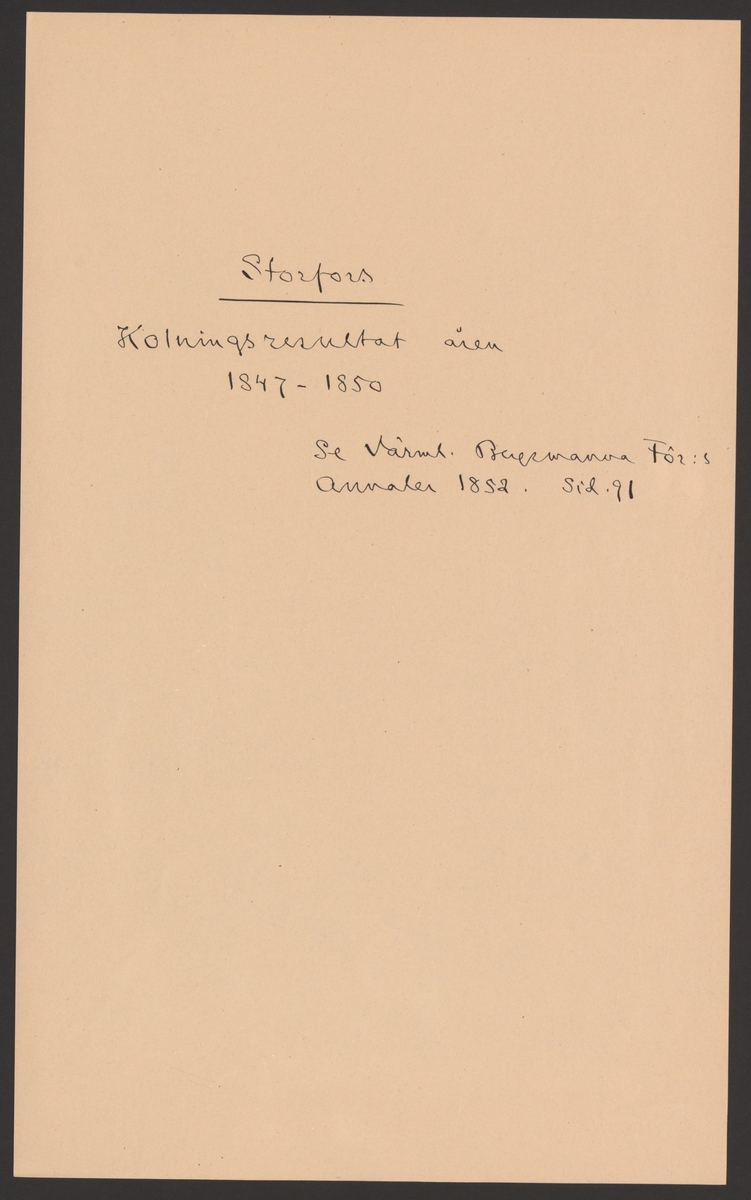 Storfors
Kolningsresultat åren
1847 - 1850
Se Värml. Bergsmanna För:s
Annaler 1852. Sid. 91